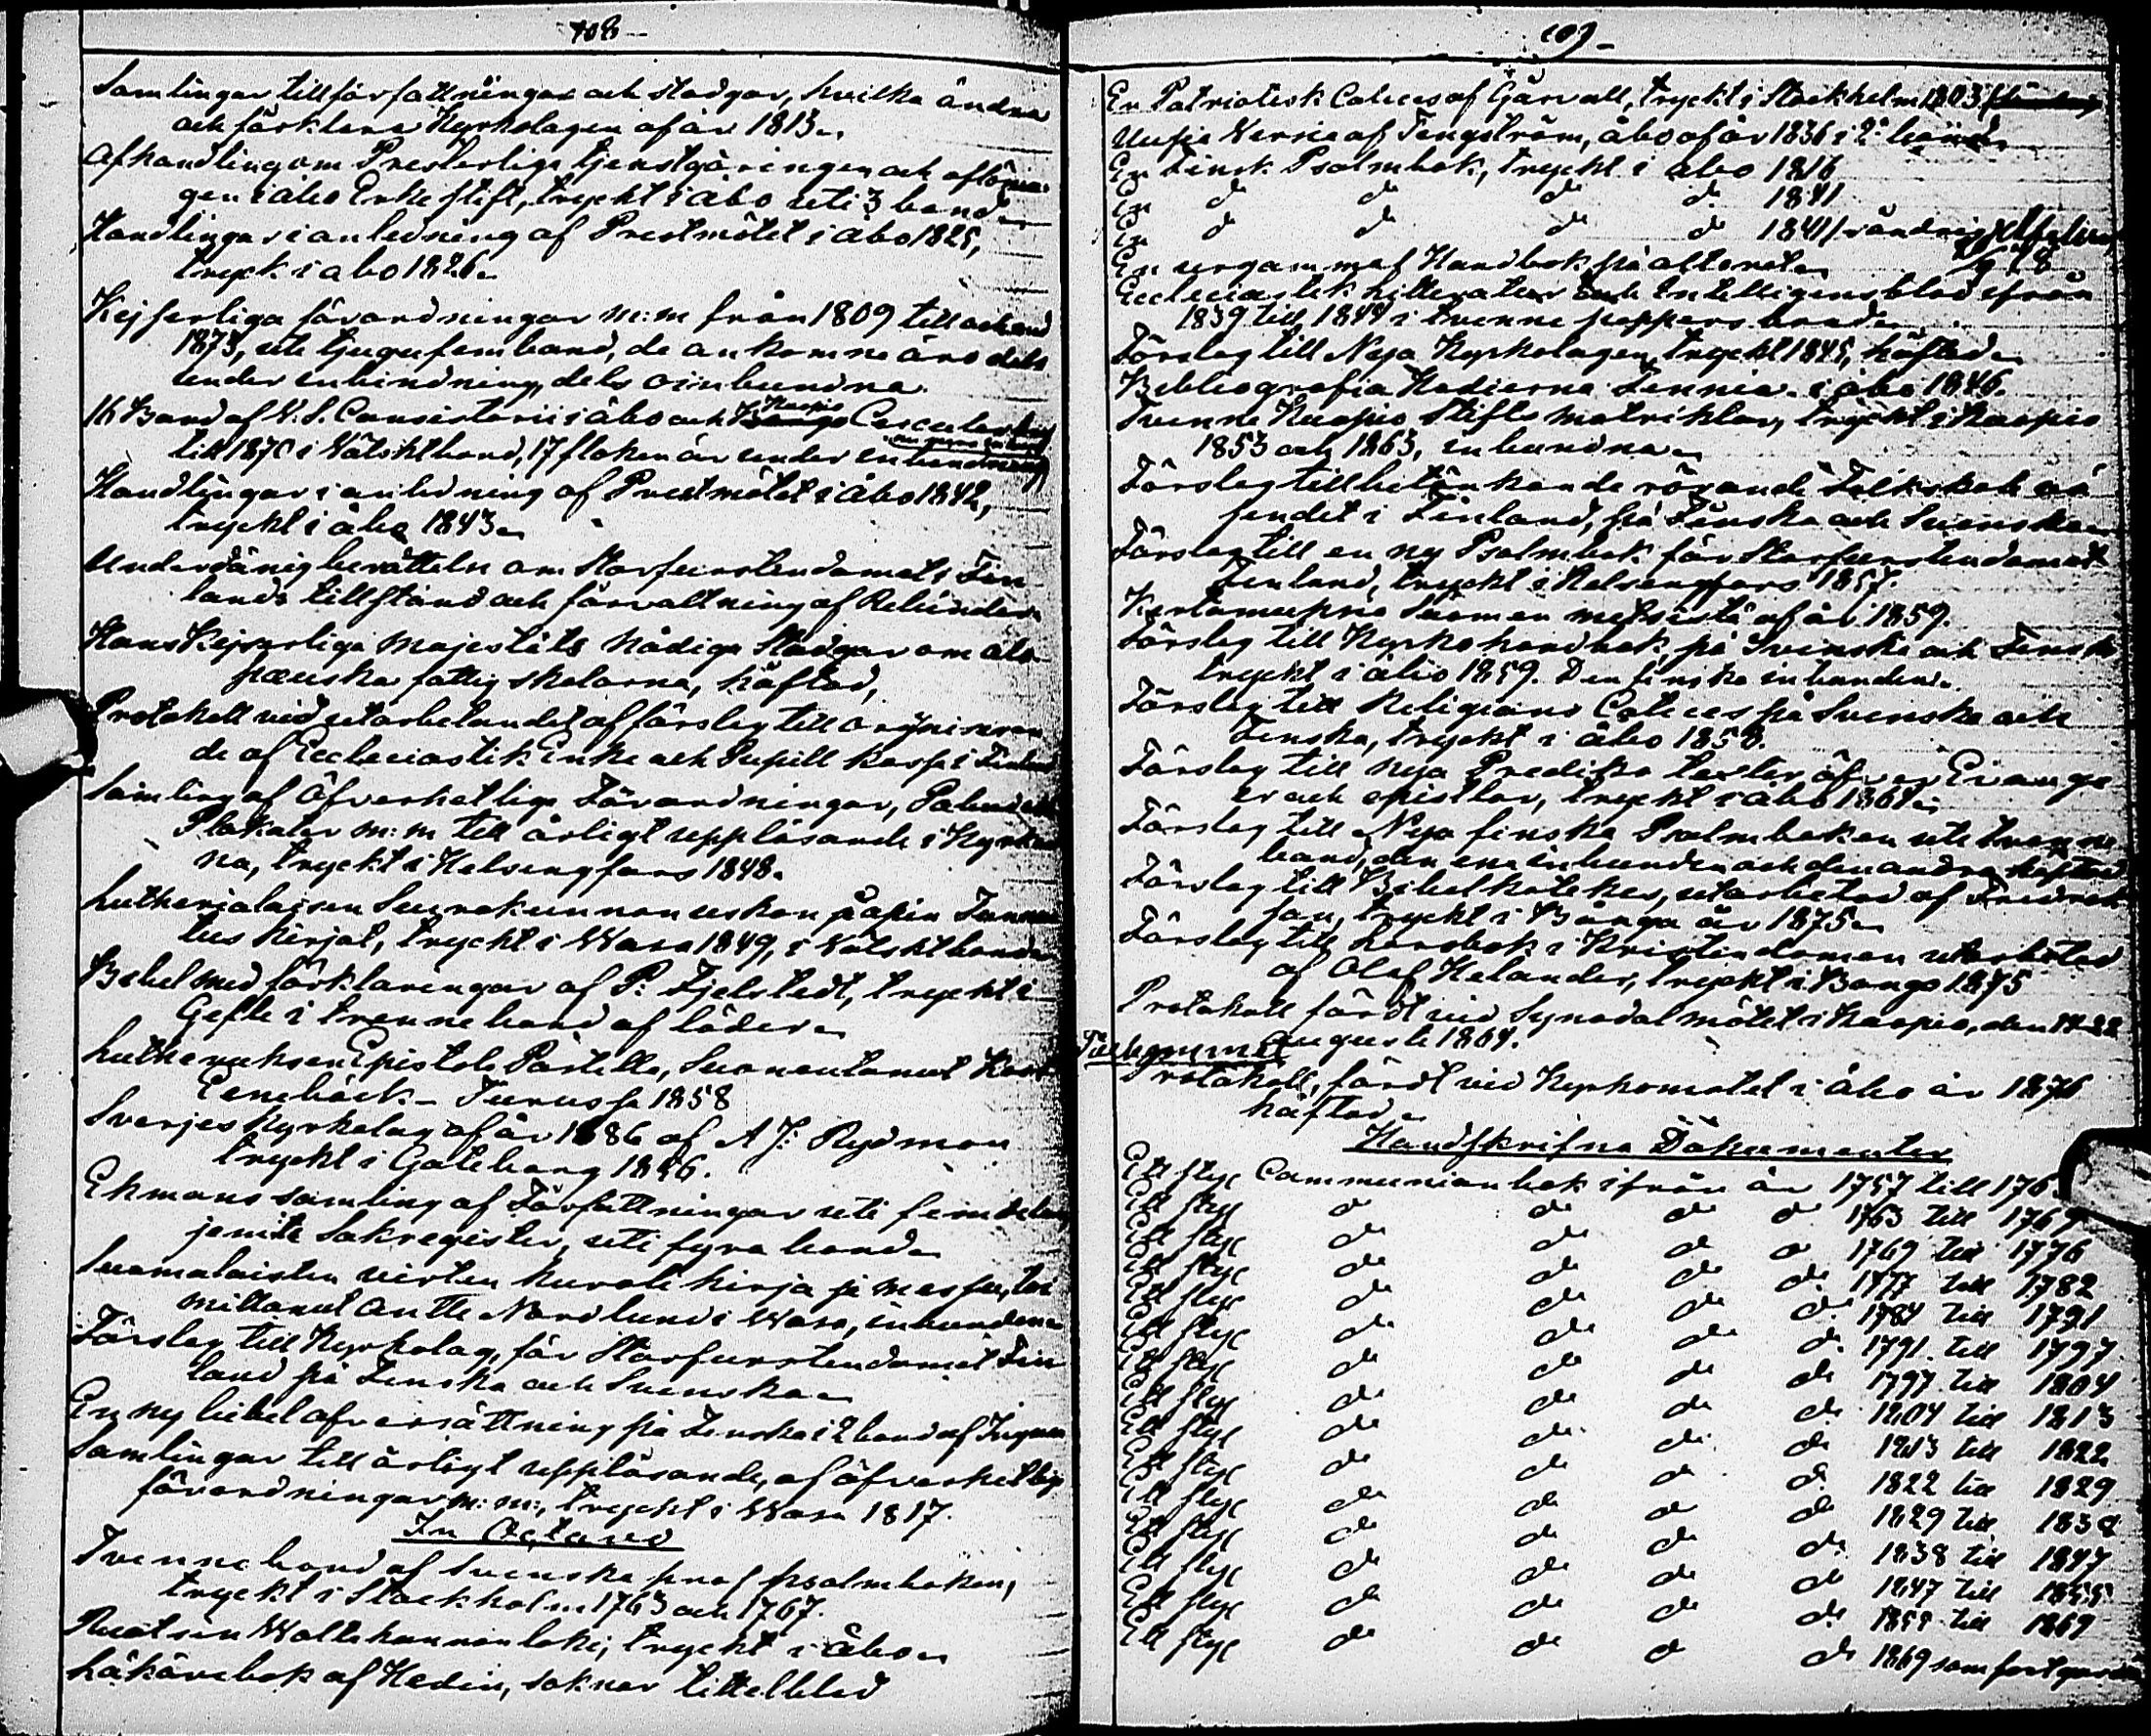 108
Samlingar till författningar och stadgar, hvilka ändra
och förklara Kyrkolagen af år 1813.
Afhandling om Presterliga tjenstgöringen och aflönin
gen i Åbo Erke stift, tryckt i Åbo uti 3 band
Handlingar i anledning af Prestmötet i Åbo 1825,
tryck i Åbo 1826.
Kejserliga förordningar m:m från 1809 till och med
1873, uti tjugufem band, de ankomne äro dels
under inbindning, dels oinbundna.
16 Band af V. S. Consistorii i Åbo och Kuopio Circulär
till 1870 i Wälsktband, 17 floken är under inbindning
Handlingar i anledning af Prestmötet i Åbo 1842,
tryckt i Åbo 1843.
Underdånig berättelse om Storfurstendömets Fin
lands tillstånd och förvaltning af Rehbinder
Hans Kejserliga Majestäts Nådiga Stadgar om
skolorna, häftad,
Protokoll vid utarbetandet af förslag till organiseran
de af Ecclesiastik Enke och Pupill kassa i Finland
Samling af Öfverhetliga Förordningar, Påbud och
Plakater m:m till årligt uppläsande i Kyrkor
na, tryckt i Helsingfors 1848.
Lutherialaisen Seurakunnan uskon opin Tunnus
tus kirjat, tryckt i Wasa 1849, i Wälskt band
Bibel med förklaringar af P: Fjelstedt, tryckt i
Gefle i trenne band af läder
Lutheruksen Epistola Postilla, Suomentanut
Eenebäck - Turussa 1858
Sverjes Kyrkolag af år 1686 af A J: Rydman
tryckt i Göteborg 1846.
Ekmans samling af Författningar uti fem delar
jemte Sakregister, uti fyra band
Suomalaisten virten kuvali kirja
Antti Nordlund i Wasa, inbunden
Förslag till Kyrkolag, för Storfurstendömet Fin
land på Finska och Svenska
En ny bibel öfversättning på Finska i 2 band af Ingman
Samlingar till årligt uppläsande, af öfverhetliga
förordningar m:m:, tryckt i Wasa 1817.
In Octavo
Tvenne band af Svenska prof psalmboken,
tryckt i Stockholm 1763 och 1767.
Ruotsin Waltakunnan laki, tryckt i Åbo
Läkärebok af Hedin, saknar tittelblad
109
En Patriotisk Cateces af Gjörwell, tryckt i Stockholm 1803
Uusia Versio af Tengström, Åbo af år 1836 i 2 band
En Finsk Psalmbok, tryckt i Åbo 1816
En d d d d 1841
En d d d d 1841
En urgammal Handbok på altaret
Ecclesiastik Litteratur och Intelligensblad ifrån
1839 till 1844 i tvenne pappers band
Förslag till Nya Kyrkolagen, tryckt 1845, häftad
Bibliografia Hodierna Fennia. i Åbo 1846.
Tvenne Kuopio Stifts matriklar, tryckt i Kuopio
1853 och 1863, inbundna
Förslag till betänkande rörande Folkskole vä
sendet i Finland, på Finska och Svenska
Förslag till en ny Psalmbok för Storfurstendömet
Finland, tryckt i Helsingfors 1857.
Kertomuksia Suomen metsistä af år 1859.
Förslag till Kyrko handbok på Svenska och Finska
tryckt i Åbo 1859. Den finska inbunden.
Förslag till Religions Cateces på Svenska och
Finska, tryckt i Åbo 1858.
Förslag till nya Prediko texter öfver Evange
er och epistlar, tryckt i Åbo 1861
Förslag till Nya finska Psalmboken uti tvenne
band, den ena inbunden och den andra häftad
Förslag till Bibelkatekes, utarbetad af Fredrik
son, tryckt i Borgå år 1875
Förslag till Lärobok i Kristendomen utarbetad
af Olof Helander, tryckt i Borgå 1875
Protokoll fördt vid Synodal mötet i Kuopio, den
Augusti 1864.
Protokoll, fördt vid Kyrkomötet i Åbo år 1876
häftad.
Handskrifna Dokumenter
Ett styc Communionbok ifrån år 1757 till 176
Ett styc d d d d 1763 till 1769
Ett styc d d d d 1769 till 1776
Ett styc d d d d 1777 till 1782
Ett styc d d d d 1784 till 1791
Ett styc d d d d 1791 till 1797
Ett styc d d d d 1797 till 1804
Ett styc d d d d 1804 till 1813
Ett styc d d d d 1813 till 1822
Ett styc d d d d 1822 till 1829
Ett styc d d d d 1829 till 1838
Ett styc d d d d 1838 till 1847
Ett styc d d d d 1847 till 1855
Ett styc d d d d 1855 till 1869
Ett styc d d d d 1869 som fortgår